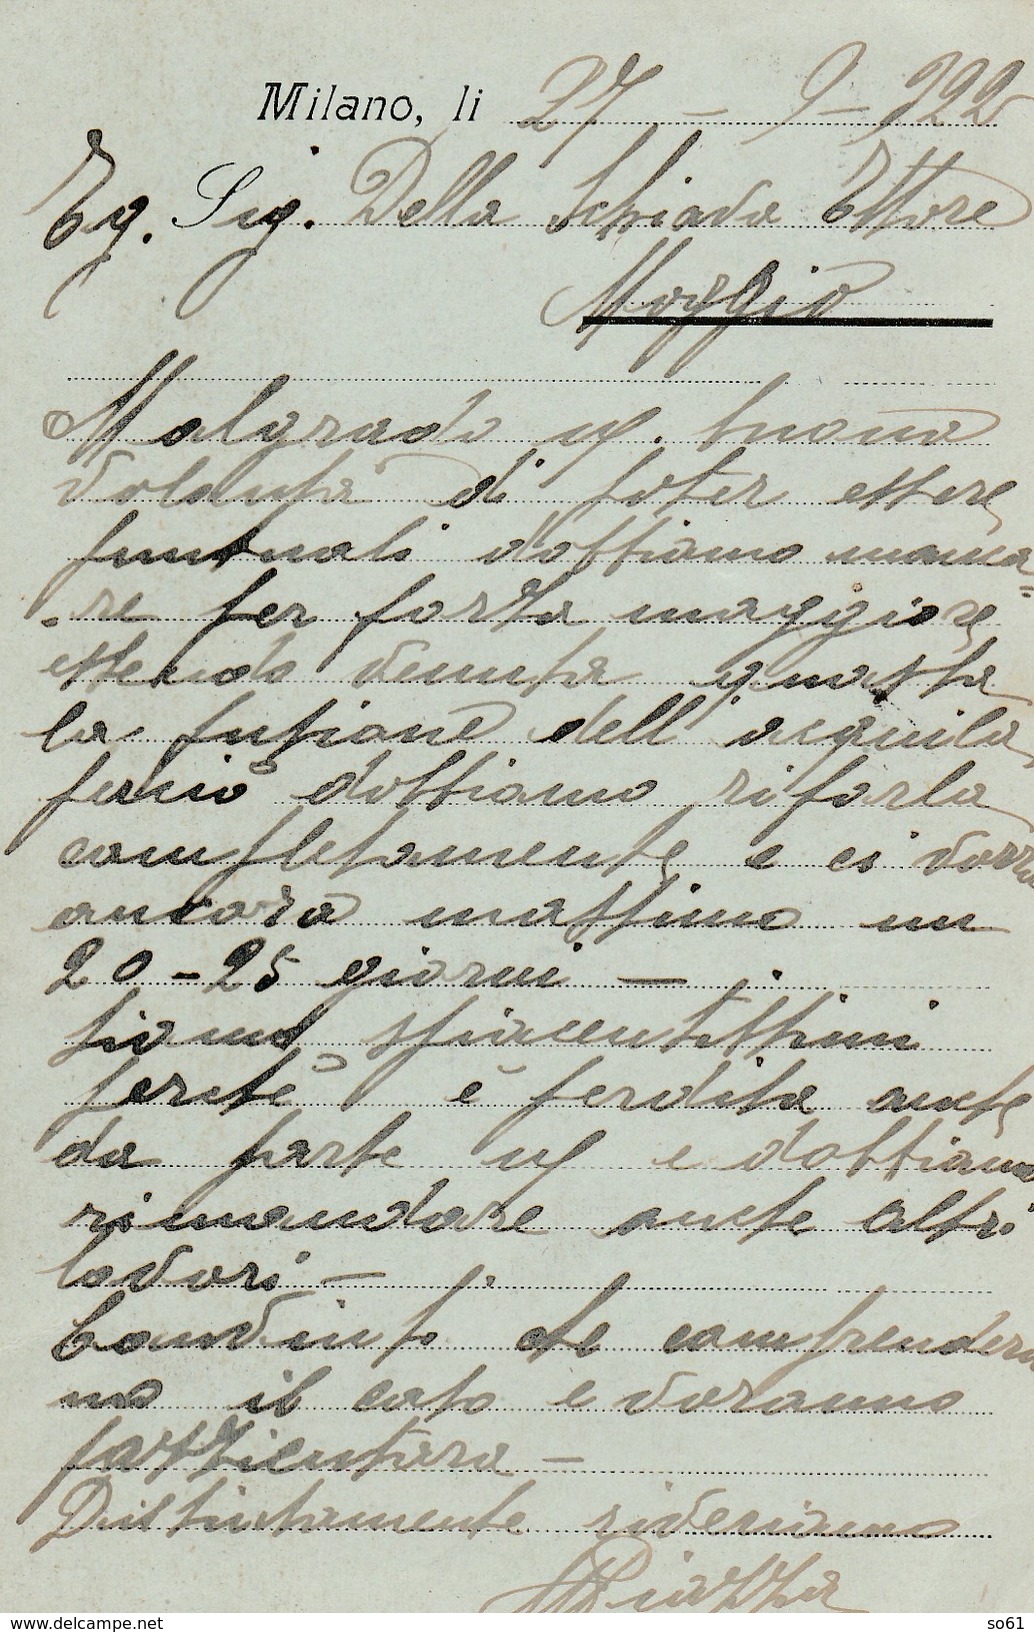 Milano, li 27 - 9 - 922
Eg. Sig. Della Schiava Ettore
Moggio
Malgrado ns. buona
volontà di poter essere
puntuali dobbiamo manca=
-re per forza maggiore
essendo venuta guasta
la fusione dell'acquila
perciò dobbiamo rifarla
completamente e ci vorrà
ancora massimo un
20-25 giorni -
siamo spiacentissimi
perchè è perdita anche
da parte ns e dobbiamo
rimandare anche altri
lavori -
Convinto che comprendera
no il caso e voranno
pazzientara -
Distintamente riveriamo
Piazza
delcampe.net
so61